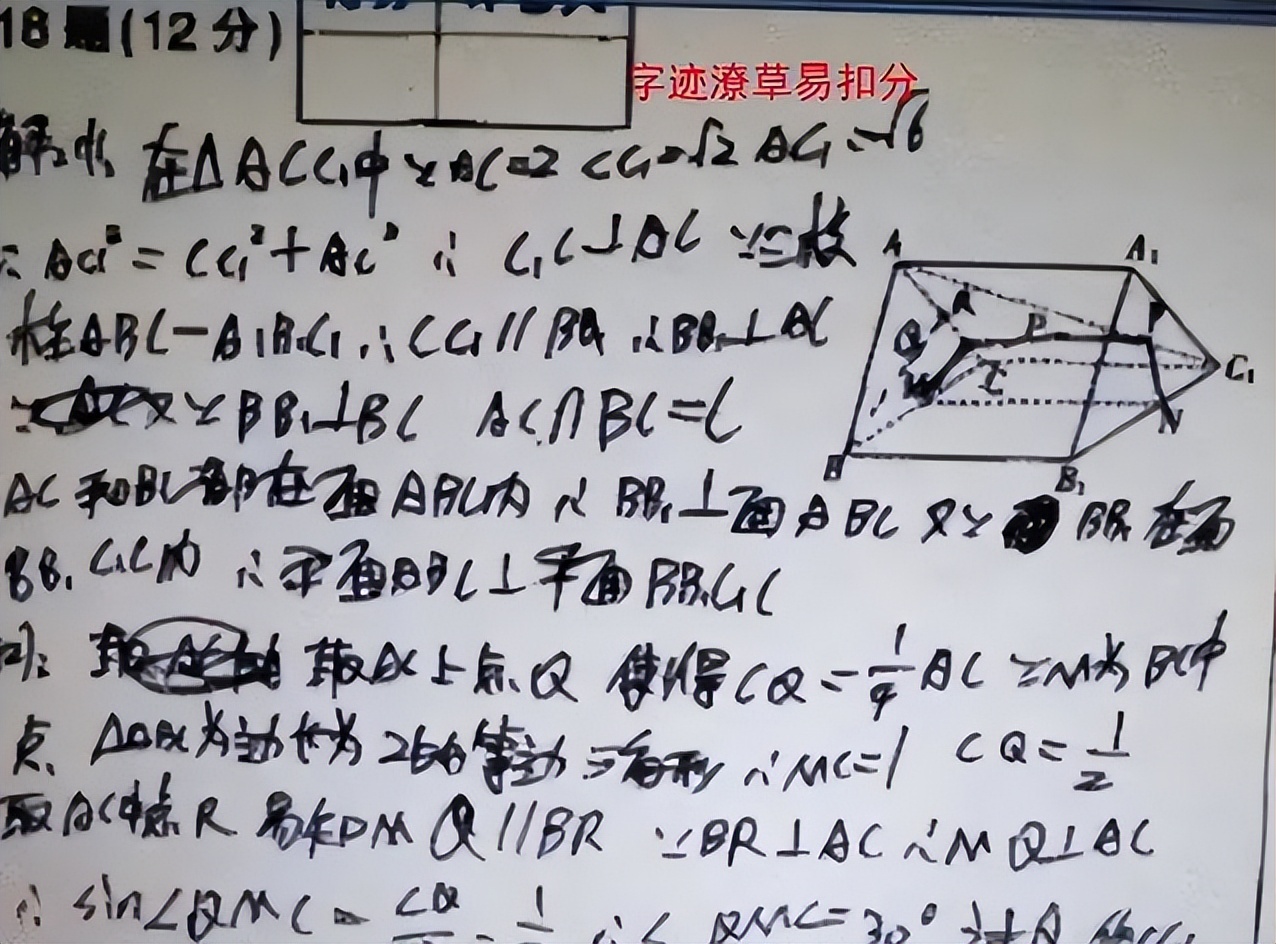 18题(12分)
字迹潦草易扣分
解:(1) 在△ACC₁中∵AC=2 CC₁=√2 AC₁=√6
∴AC₁²=CC₁²+AC² ∴C₁C⊥AC ∵三棱
柱ABC-A₁B₁C₁∴CC₁//BB₁∴BB₁⊥AC
又∵BB₁⊥BC AC∩BC=C
AC和BC都在面ABC内∴BB₁⊥面ABC又∵BB₁在面
BB₁C₁C内∴平面ABC⊥平面BB₁C₁C
A A₁
R P
Q
M C C₁
N
B B₁
取AC上点Q 使得CQ=1/4AC ∵M为BC中
点、△ABC为边长为2的等边三角形∴MC=1 CQ=1/2
取AC中点R 易知MQ//BR ∵BR⊥AC∴MQ⊥AC
∴sin∠QMC=CQ = 1 ∴∠QMC=30°